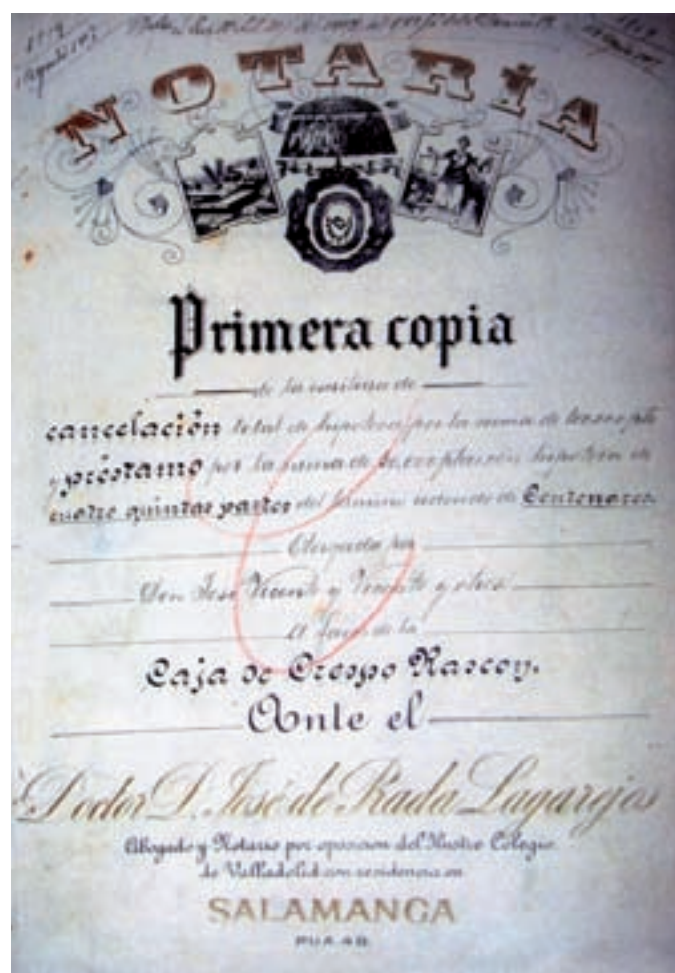 NOTARÍA
Primera copia
de la escritura de
cancelación total de hipoteca por la suma de
y préstamo por la suma de hipoteca de
cuatro quintas partes del término redondo de Centenares.
Otorgada por
Don José Vicente y Vicente y otros
a favor de la
Caja de Crespo Rascon.
Ante el
Doctor D. José de Prada Lagarejos
Abogado y Notario por oposicion del Ilustre Colegio
de Valladolid con residencia en
SALAMANCA
RUA. 48